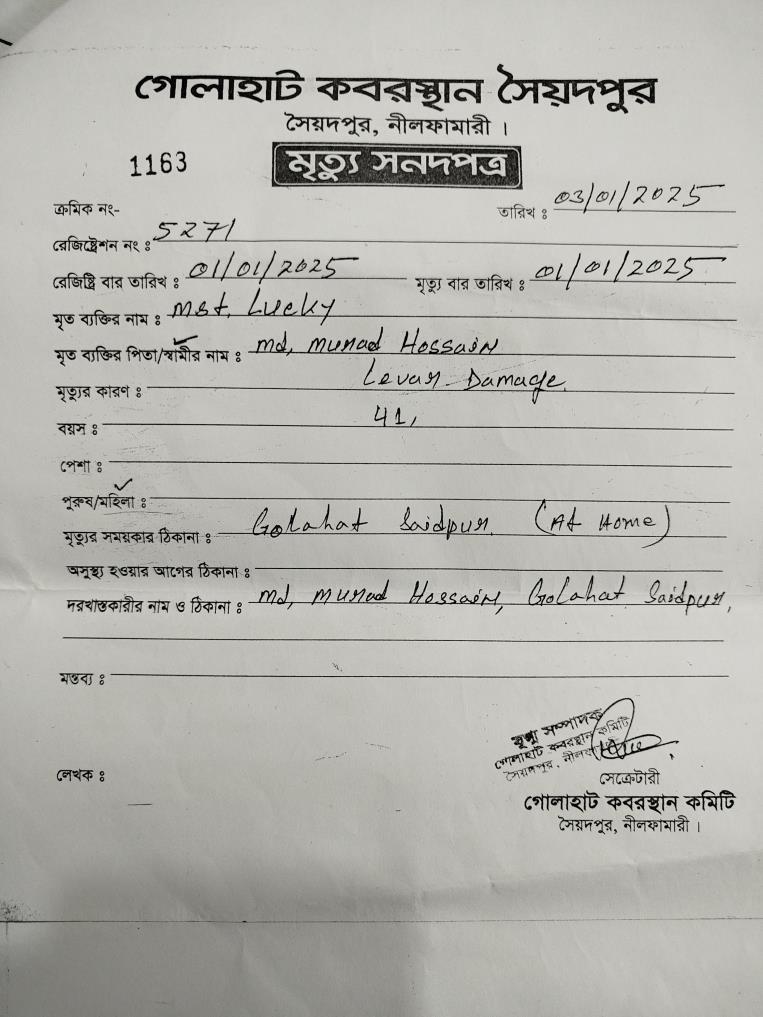 গোলাহাট কবরস্থান সৈয়দপুর
সৈয়দপুর, নীলফামারী ।
1163 মৃত্যু সনদপত্র
ক্রমিক নং- তারিখ ঃ 03/01/2025
রেজিষ্ট্রেশন নং ঃ 5271
রেজিষ্ট্রি বার তারিখ ঃ 01/01/2025 মৃত্যু বার তারিখ ঃ 01/01/2025
মৃত ব্যক্তির নাম ঃ Mst. Lucky
মৃত ব্যক্তির পিতা/স্বামীর নাম ঃ Md, Murad Hossain
মৃত্যুর কারণ ঃ Levar Damage
বয়স ঃ 41,
পেশা ঃ
পুরুষ/মহিলা ঃ
মৃত্যুর সময়কার ঠিকানা ঃ Golahat Saidpur. (At Home)
অসুস্থ্য হওয়ার আগের ঠিকানা ঃ
দরখাস্তকারীর নাম ও ঠিকানা ঃ Md, Murad Hossain, Golahat Saidpur,
মন্তব্য ঃ
যুগ্ম সম্পাদক
গোলাহাট কবরস্থান কমিটি
সৈয়দপুর, নীলফামারী
লেখক ঃ সেক্রেটারী
গোলাহাট কবরস্থান কমিটি
সৈয়দপুর, নীলফামারী ।